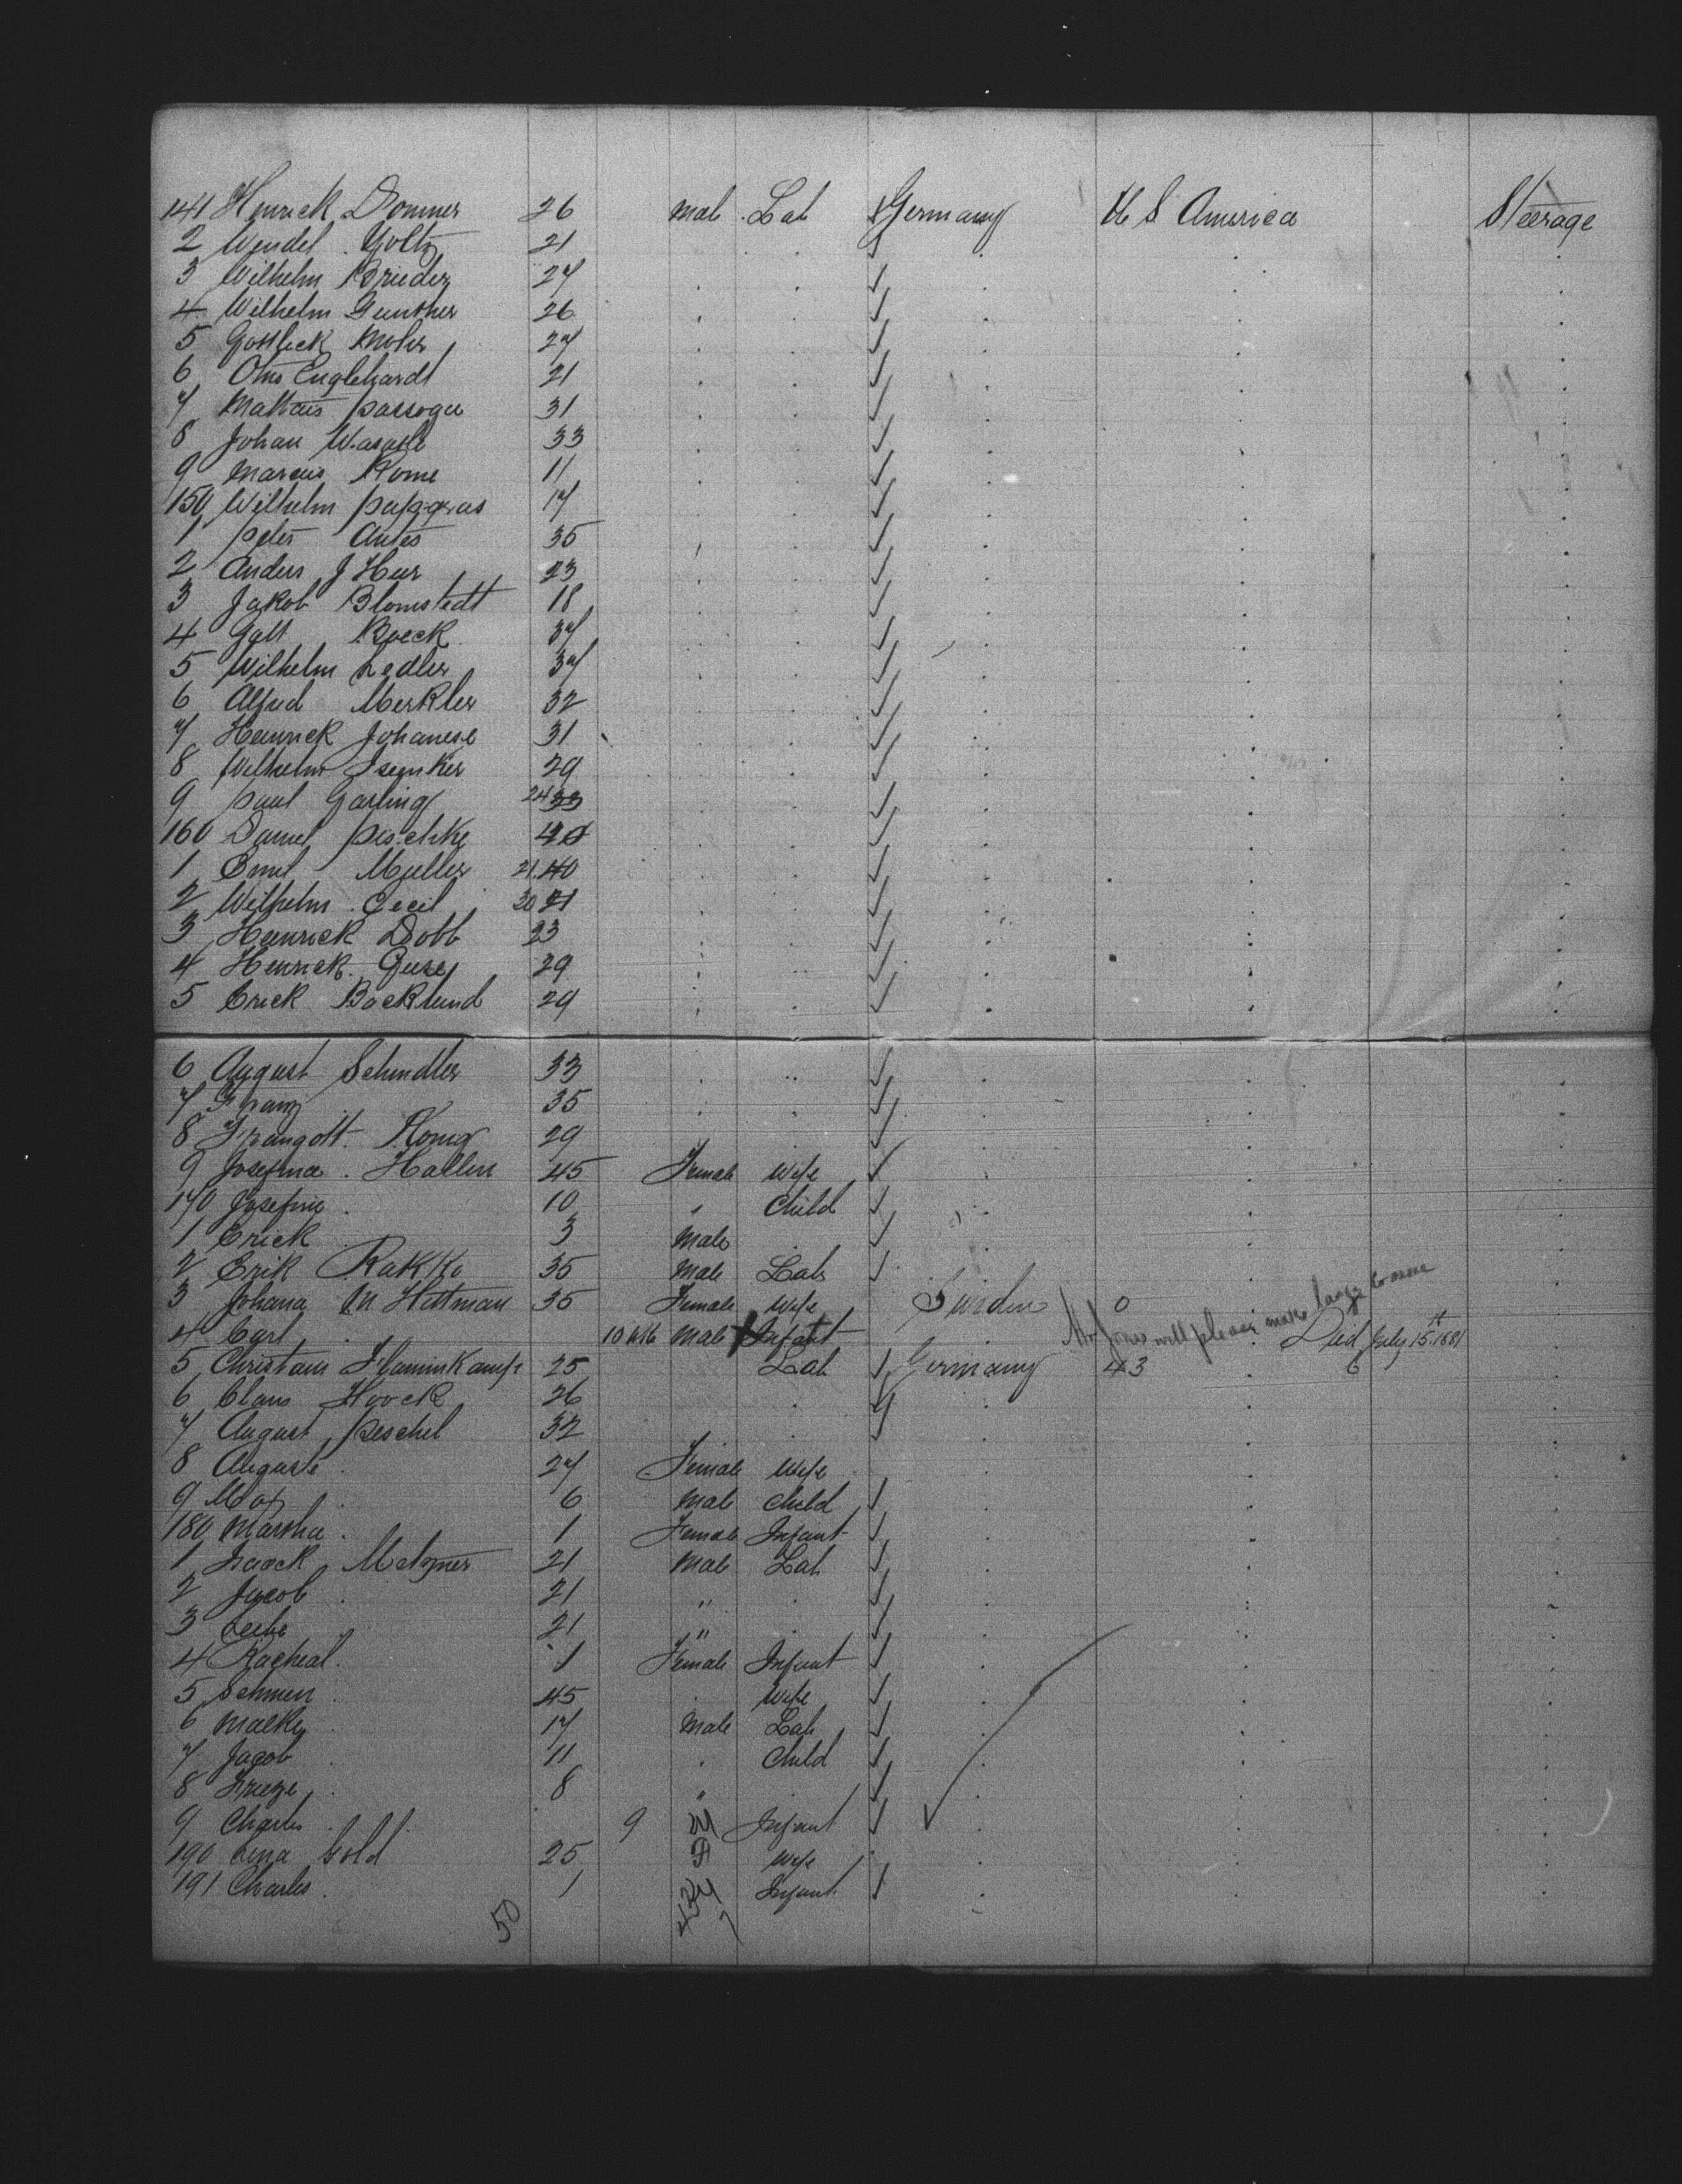 141 Henrick Donner 26 Male Lab Germany U S America Steerage
2 Wendel Yoltz 21
3 Wilhelm Brieder 27
4 Wilhelm Gunther 26
5 Gottlieb Mohr 27
6 Otto Englehardt 21
7 Mattaus Passoga 31
8 Johan 33
9 Marcus Rome 11
150 Wilhelm Pappgras 17
1 Peter Antes 35
2 Anders J Heer 23
3 Jakob Blomstedt 18
4 Galt Boeck 37
5 Wilhelm Ledler 37
6 Alfred Merkler 32
7 Heinrick Johanese 31
8 Wilhelm Isemker 29
9 Paul Garling 24 33
160 Daniel Peschke 40
1 Emil Muller 21 40
2 Wilhelm Cecil 20 21
3 Heinrick Dobb 23
4 Henrick Guse 29
5 Erick Backlund 29
6 August Schindler 33
7 Franz 35
8 Traugott Konig 29
9 Josefina Hallen 45 Female Wife
170 Josefine 10 " Child
1 Erick 3 Male
2 Erik Rakkko 35 Male Lab
3 Johana M Hittman 35 Female Wife Sweden 0
4 Carl 10 Mts Male Infant Mr Jones will please make Died July 15th 1881
5 Christian Flaminkamp 25 Lab Germany 43 6
6 Claus Hoock 26
7 August Peschel 32
8 Auguste 27 Female Wife
9 Max 6 Male Child
180 Martha 1 Female Infant
1 Isaack Metzner 21 Male Lab
2 Jacob 21 "
3 Leibe 21 "
4 Racheal 1 Female Infant
5 Schmen 45 Wife
6 Malky 17 Male Lab
7 Jacob 11 Child
8 8 "
9 Charles 9 M Infant
190 Lina Gold 25 F Wife
191 Charles 1 M Infant
50 43 7